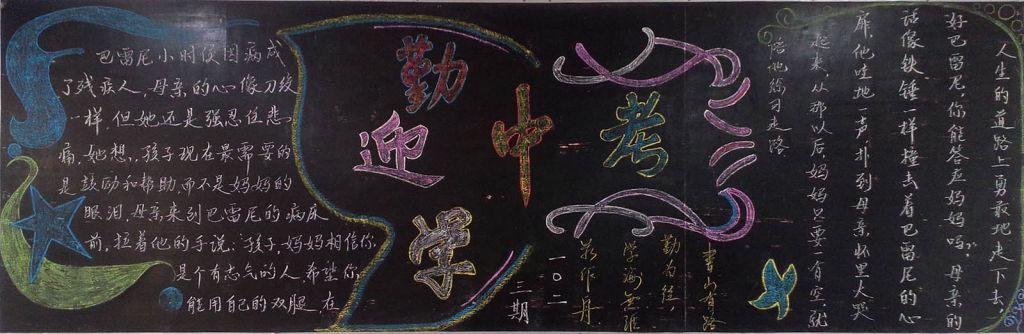 巴雷尼小时候因病成
了残疾人，母亲的心像刀绞
一样，但她还是强忍住悲
痛，她想，孩子现在最需要的
是鼓励和帮助，而不是妈妈的
眼泪，母亲来到巴雷尼的病床
前，拉着他的手说：“孩子，妈妈相信你
是个有志气的人，希望你
能用自己的双腿，在
勤
迎
学
中
考
人生的道路上勇敢地走下去，
好巴雷尼，你能答应妈妈吗？”母亲的
话像铁锤一样撞击着巴雷尼的心
扉，他哇地一声，扑到母亲怀里大哭
起来，从那以后，妈妈只要一有空，就
陪他练习走路
书山有路
勤为径，
学海无涯
苦作舟
一〇二
三期